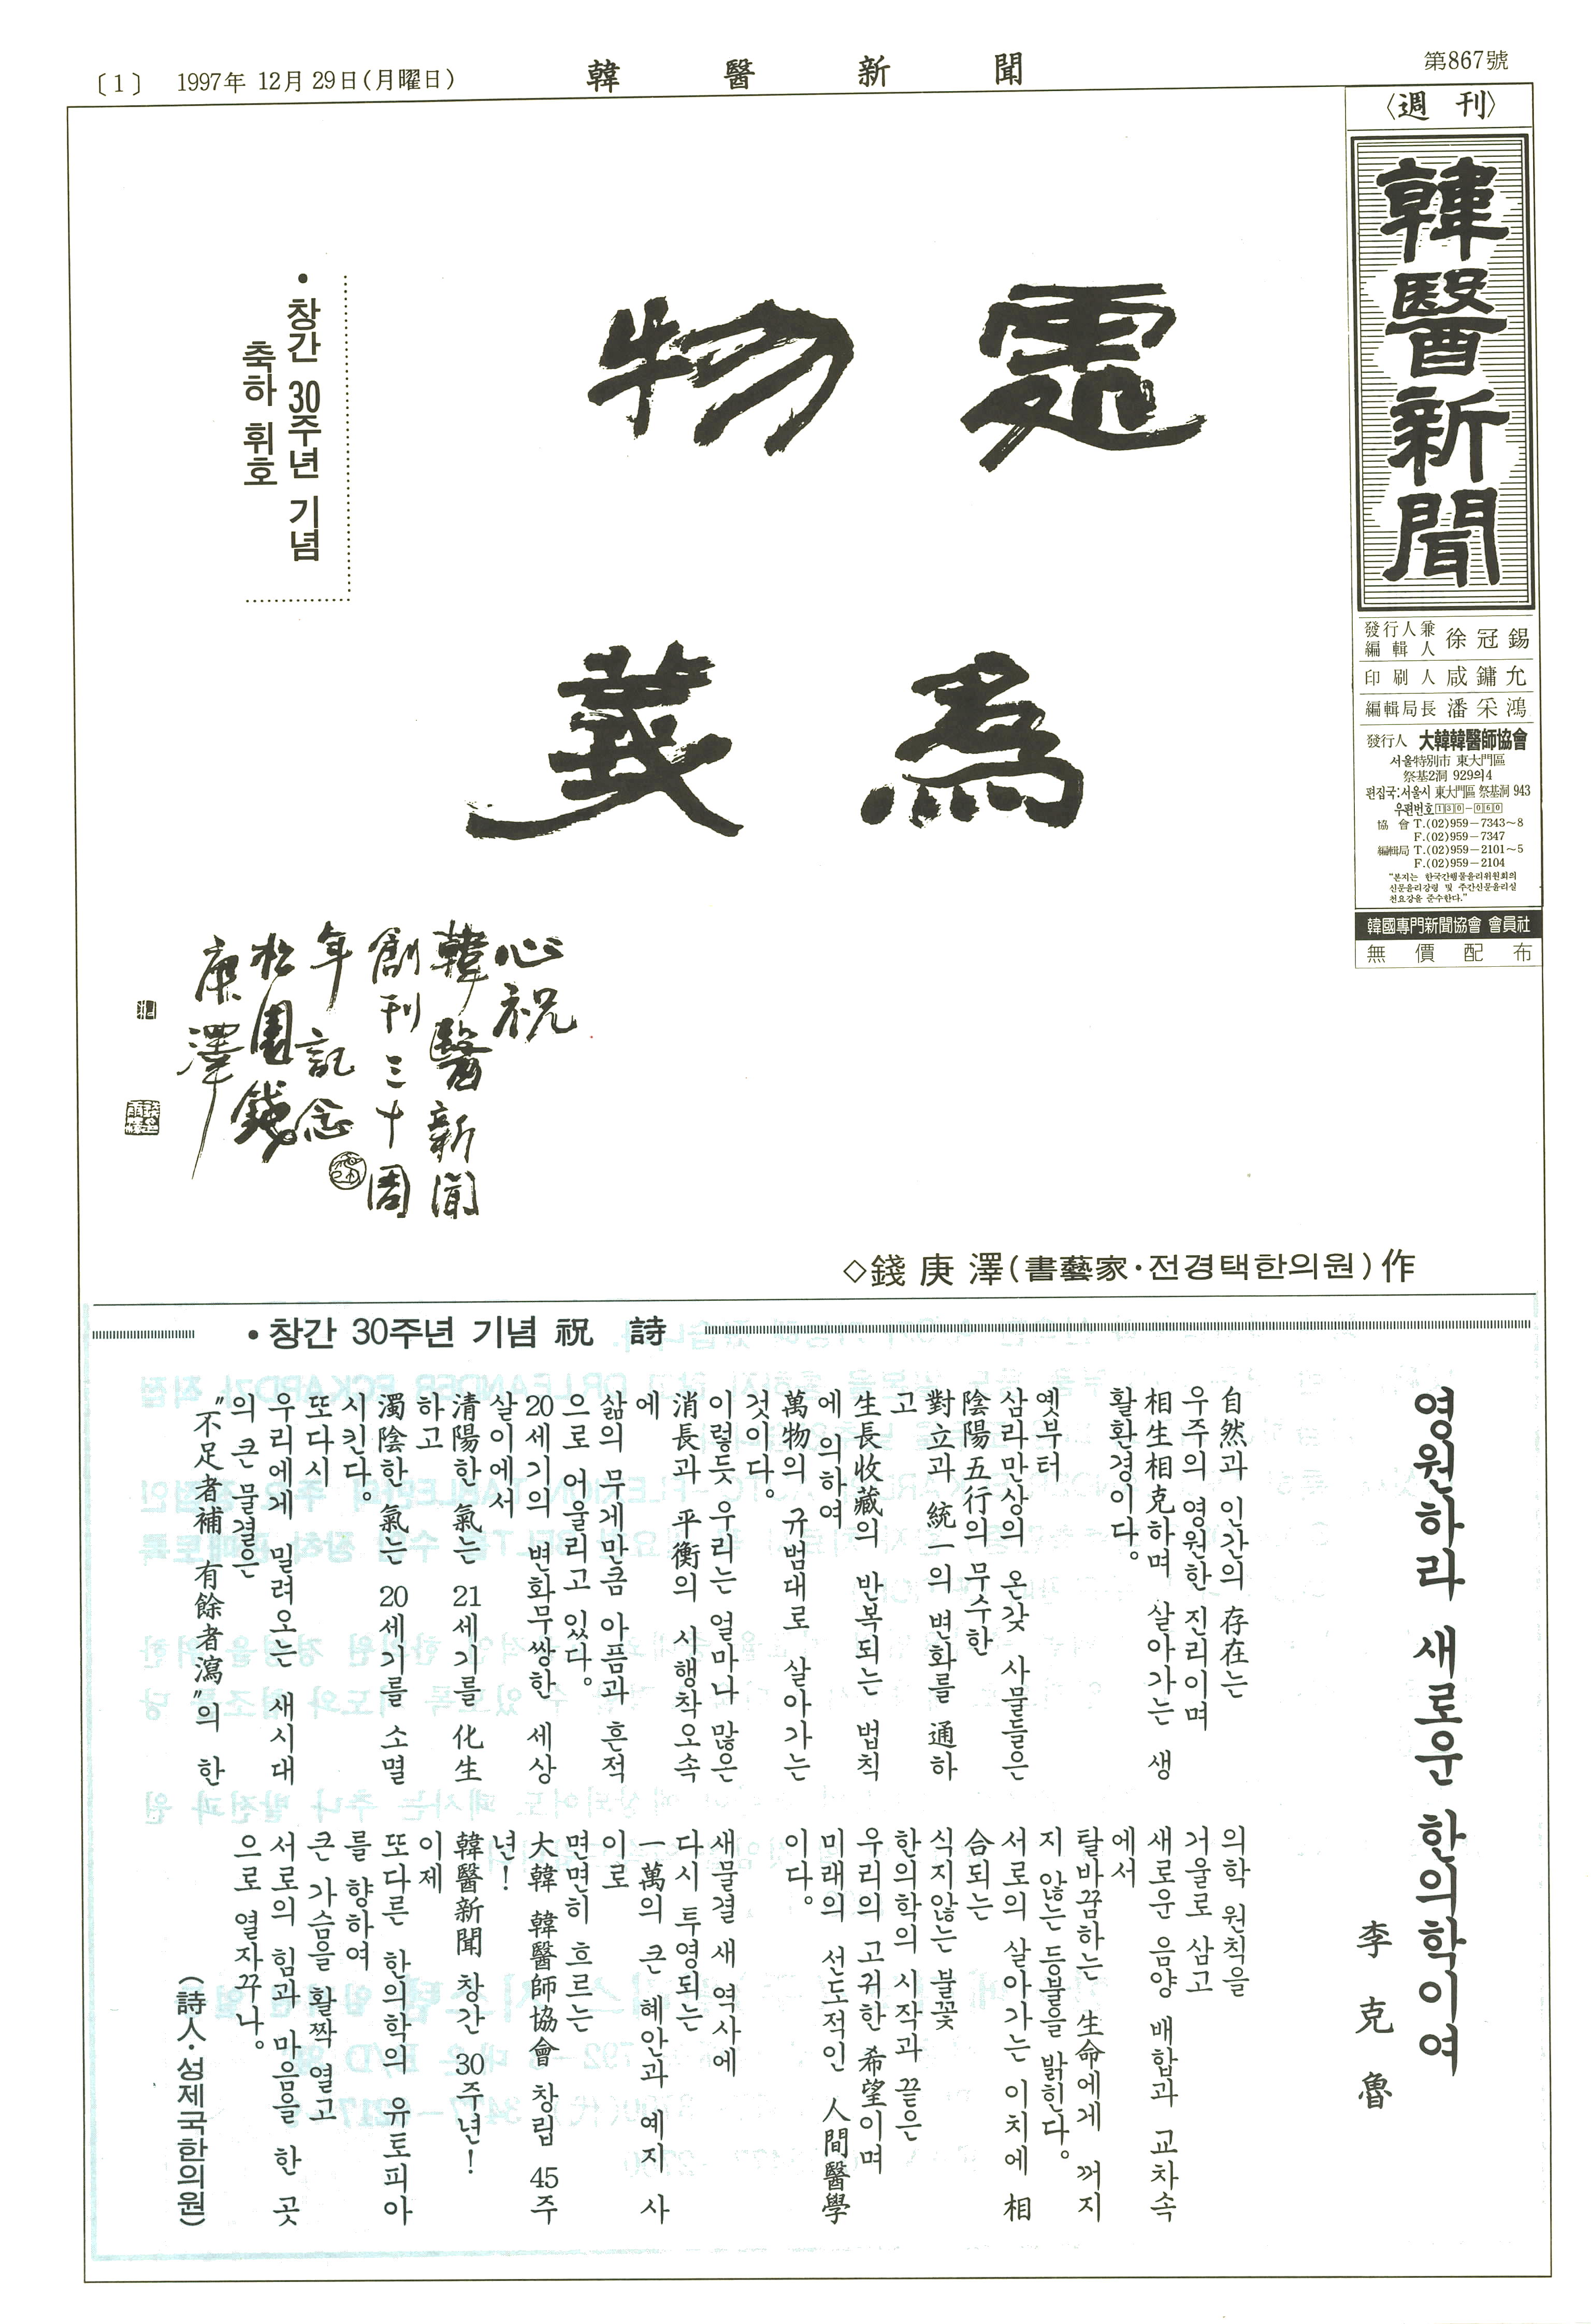 〔1〕 1997年 12月 29日(月曜日)
韓醫新聞
第867號
〈週刊〉
韓醫新聞
發行人兼
編輯人 徐冠錫
印刷人 咸鏞允
編輯局長 潘采鴻
發行人 大韓韓醫師協會
서울特別市 東大門區
祭基2洞 929의4
편집국:서울시 東大門區 祭基洞 943
우편번호 130-060
協會 T.(02)959-7343~8
F.(02)959-7347
編輯局 T.(02)959-2101~5
F.(02)959-2104
"본지는 한국간행물윤리위원회의
신문윤리강령 및 주간신문윤리실
천요강을 준수한다."
韓國專門新聞協會 會員社
無價配布
處物
爲義
•창간 30주년 기념
축하 휘호
心祝
韓醫新聞
創刊三十周
年記念
松園錢
庚澤
◇錢庚澤(書藝家·전경택한의원)作
•창간 30주년 기념 祝 詩
영원하라 새로운 한의학이여
李克魯
自然과 인간의 存在는
우주의 영원한 진리이며
相生相克하며 살아가는 생
활환경이다。
옛부터
삼라만상의 온갖 사물들은
陰陽五行의 무수한
對立과 統一의 변화를 通하
고
生長收藏의 반복되는 법칙
에 의하여
萬物의 규범대로 살아가는
것이다。
이렇듯 우리는 얼마나 많은
消長과 平衡의 시행착오속
에
삶의 무게만큼 아픔과 흔적
으로 어울리고 있다。
20세기의 변화무쌍한 세상
살이에서
清陽한 氣는 21세기를 化生
하고
濁陰한 氣는 20세기를 소멸
시킨다。
또다시
우리에게 밀려오는 새시대
의 큰 물결은
"不足者補 有餘者瀉"의 한
의학 원칙을
거울로 삼고
새로운 음양 배합과 교차속
에서
탈바꿈하는 生命에게 꺼지
지 않는 등불을 밝힌다。
서로의 살아가는 이치에 相
合되는
식지않는 불꽃
한의학의 시작과 끝은
우리의 고귀한 希望이며
미래의 선도적인 人間醫學
이다。
새물결 새 역사에
다시 투영되는
一萬의 큰 혜안과 예지 사
이로
면면히 흐르는
大韓 韓醫師協會 창립 45주
년!
韓醫新聞 창간 30주년!
이제
또다른 한의학의 유토피아
를 향하여
큰 가슴을 활짝 열고
서로의 힘과 마음을 한 곳
으로 열자꾸나。
(詩人·성제국한의원)